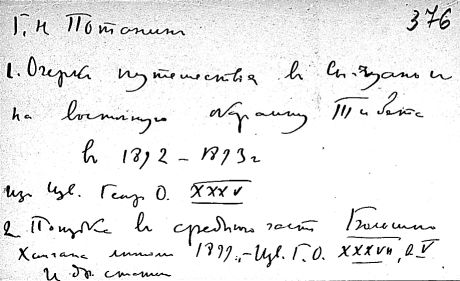 376
Г. Н Потанин
1. Очерк путешествия в Сы-чуань и
на восточную окраину Тибета
в 1892 – 1893 г
из Изв. Геогр О. XXXV
2 Поездка в среднюю часть Большого
Хингана летом 1899,– Изв. Г. О. XXXVII, в V
и др. статьи